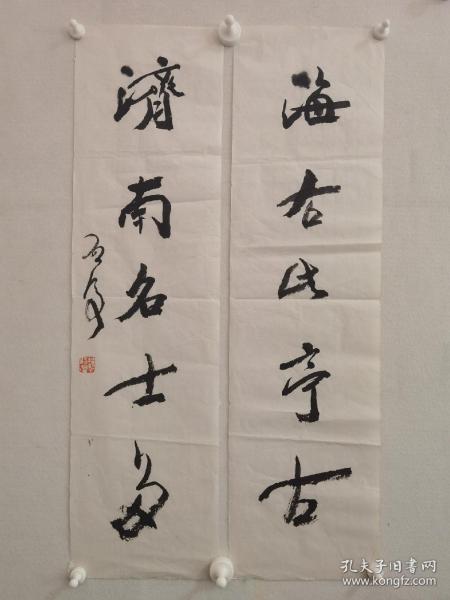 海右此亭古
濟南名士多
孔夫子旧书网
www.kongfz.com